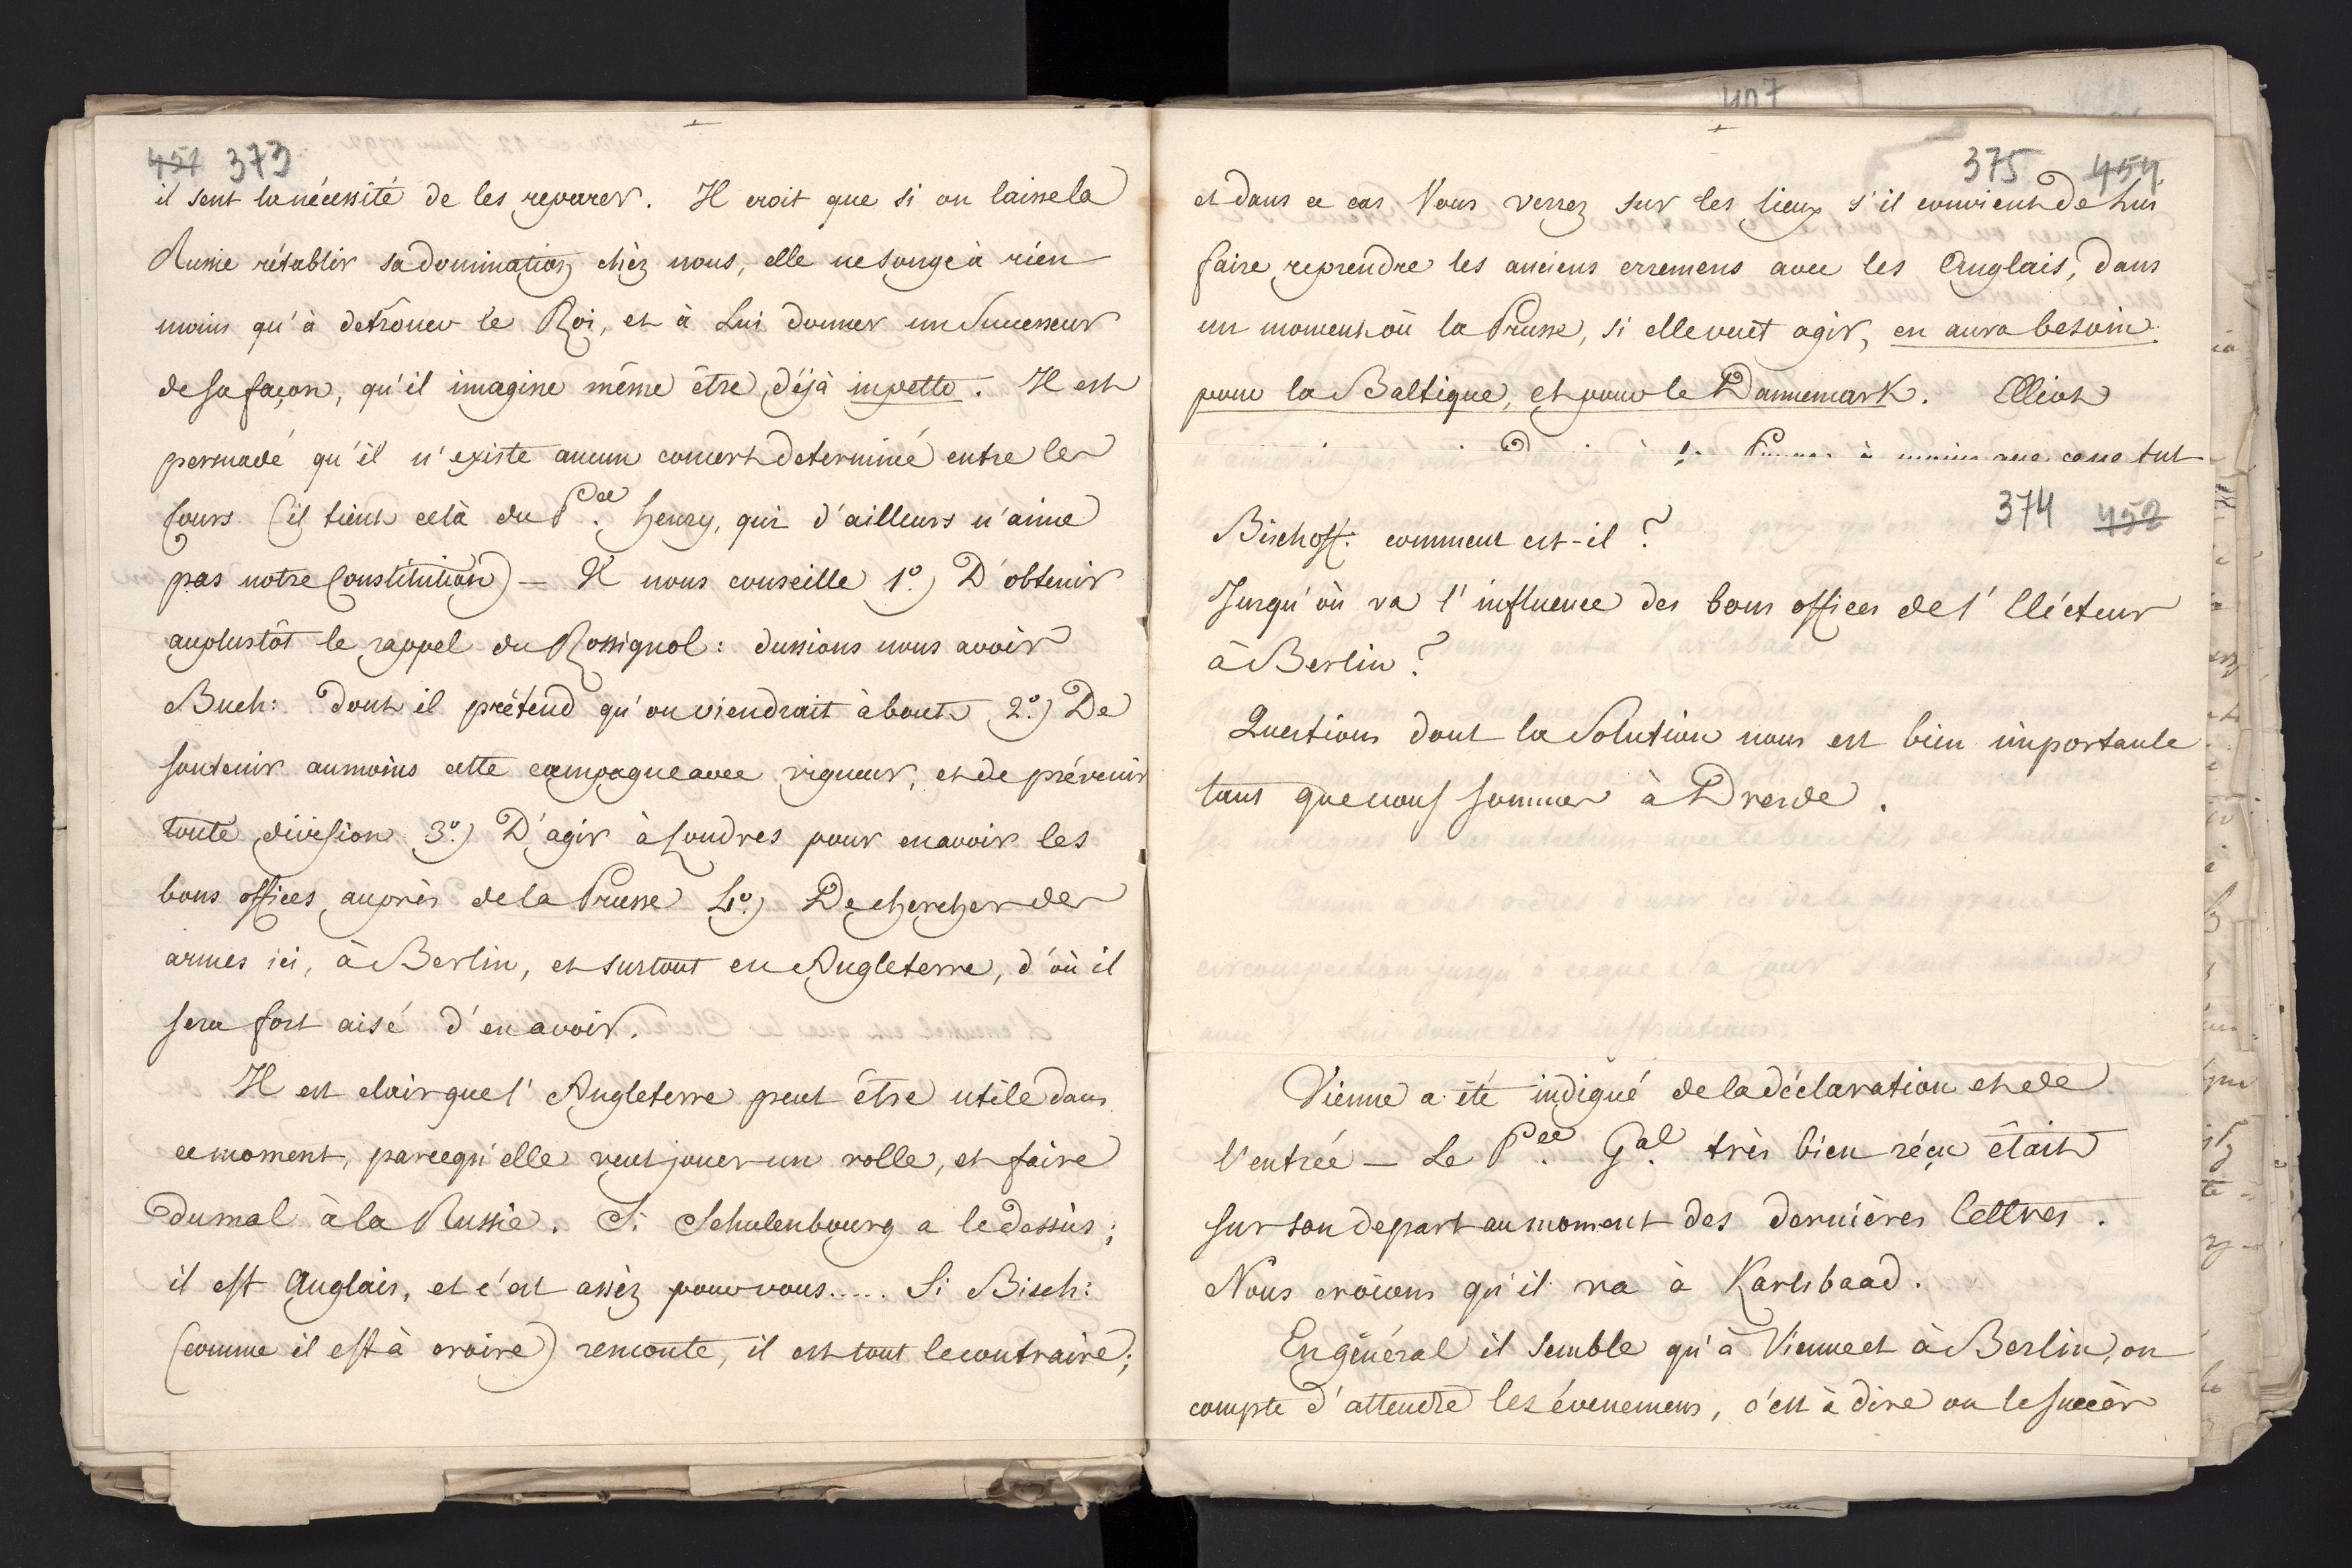 451 373
il sent la nécessité de les reparer. Il croit que si on laisse la
Russie rétablir sa domination chèz nous, elle ne songe à rién
moins qu'à detrôner le Roi, et à Lui donner un Successeur
de sa façon, qu'il imagine même être déjà in petto. Il est
persuadé qu'il n'existe aucun concert determiné entre les
Cours (il tient celà du Pce. Henry, qui d'ailleurs n'aime
pas notre Constitution) — Il nous conseille 1º.) D'obtenir
auplustôt le rappel du Rossignol: dussions nous avoir
Buch: dont il prétend qu'on viendrait à bout 2º.) De
soutenir aumoins cette campagne avec vigueur, et de prévenir
toute division 3º.) D'agir à Londres pour en avoir les
bons offices auprès de la Prusse 4º.) De chercher des
armes ici, à Berlin, et surtout en Angleterre, d'où il
sera fort aisé d'en avoir.
Il est clair que l'Angleterre peut être utile dans
ce moment, parcequ'elle veut jouer un rolle, et faire
du mal à la Russie. Si Schulenbourg a le dessùs;
il est Anglais, et c'est assèz pour vous..... Si Bisch:
(comme il est à croire) remonte, il est tout le contraire;
407
375 454
et dans ce cas Vous verrez sur les lieux s'il convient de Lui
faire reprendre les anciens erremens avec les Anglais, dans
un moment où la Prusse, si elle veut agir, en aura besoin
pour la Baltique, et pour le Dannemark. Elliot
à moins que ce ne fut
374 452
Bischoff: comment est-il?
Jusqu'où va l'influence des bons offices de l'Elécteur
à Berlin?
Questions dont la Solution nous est bien importante
tant que nous sommes à Dresde.
Vienne a été indigné de la déclaration et de
l'entrée — Le Pce. Gal. très bien réçu était
sur son depart au moment des dernières lettres.
Nous croïons qu'il va à Karlsbaad.
En général il semble qu'à Vienne et à Berlin, on
compte d'attendre les évenemens, c'est à dire ou le succès